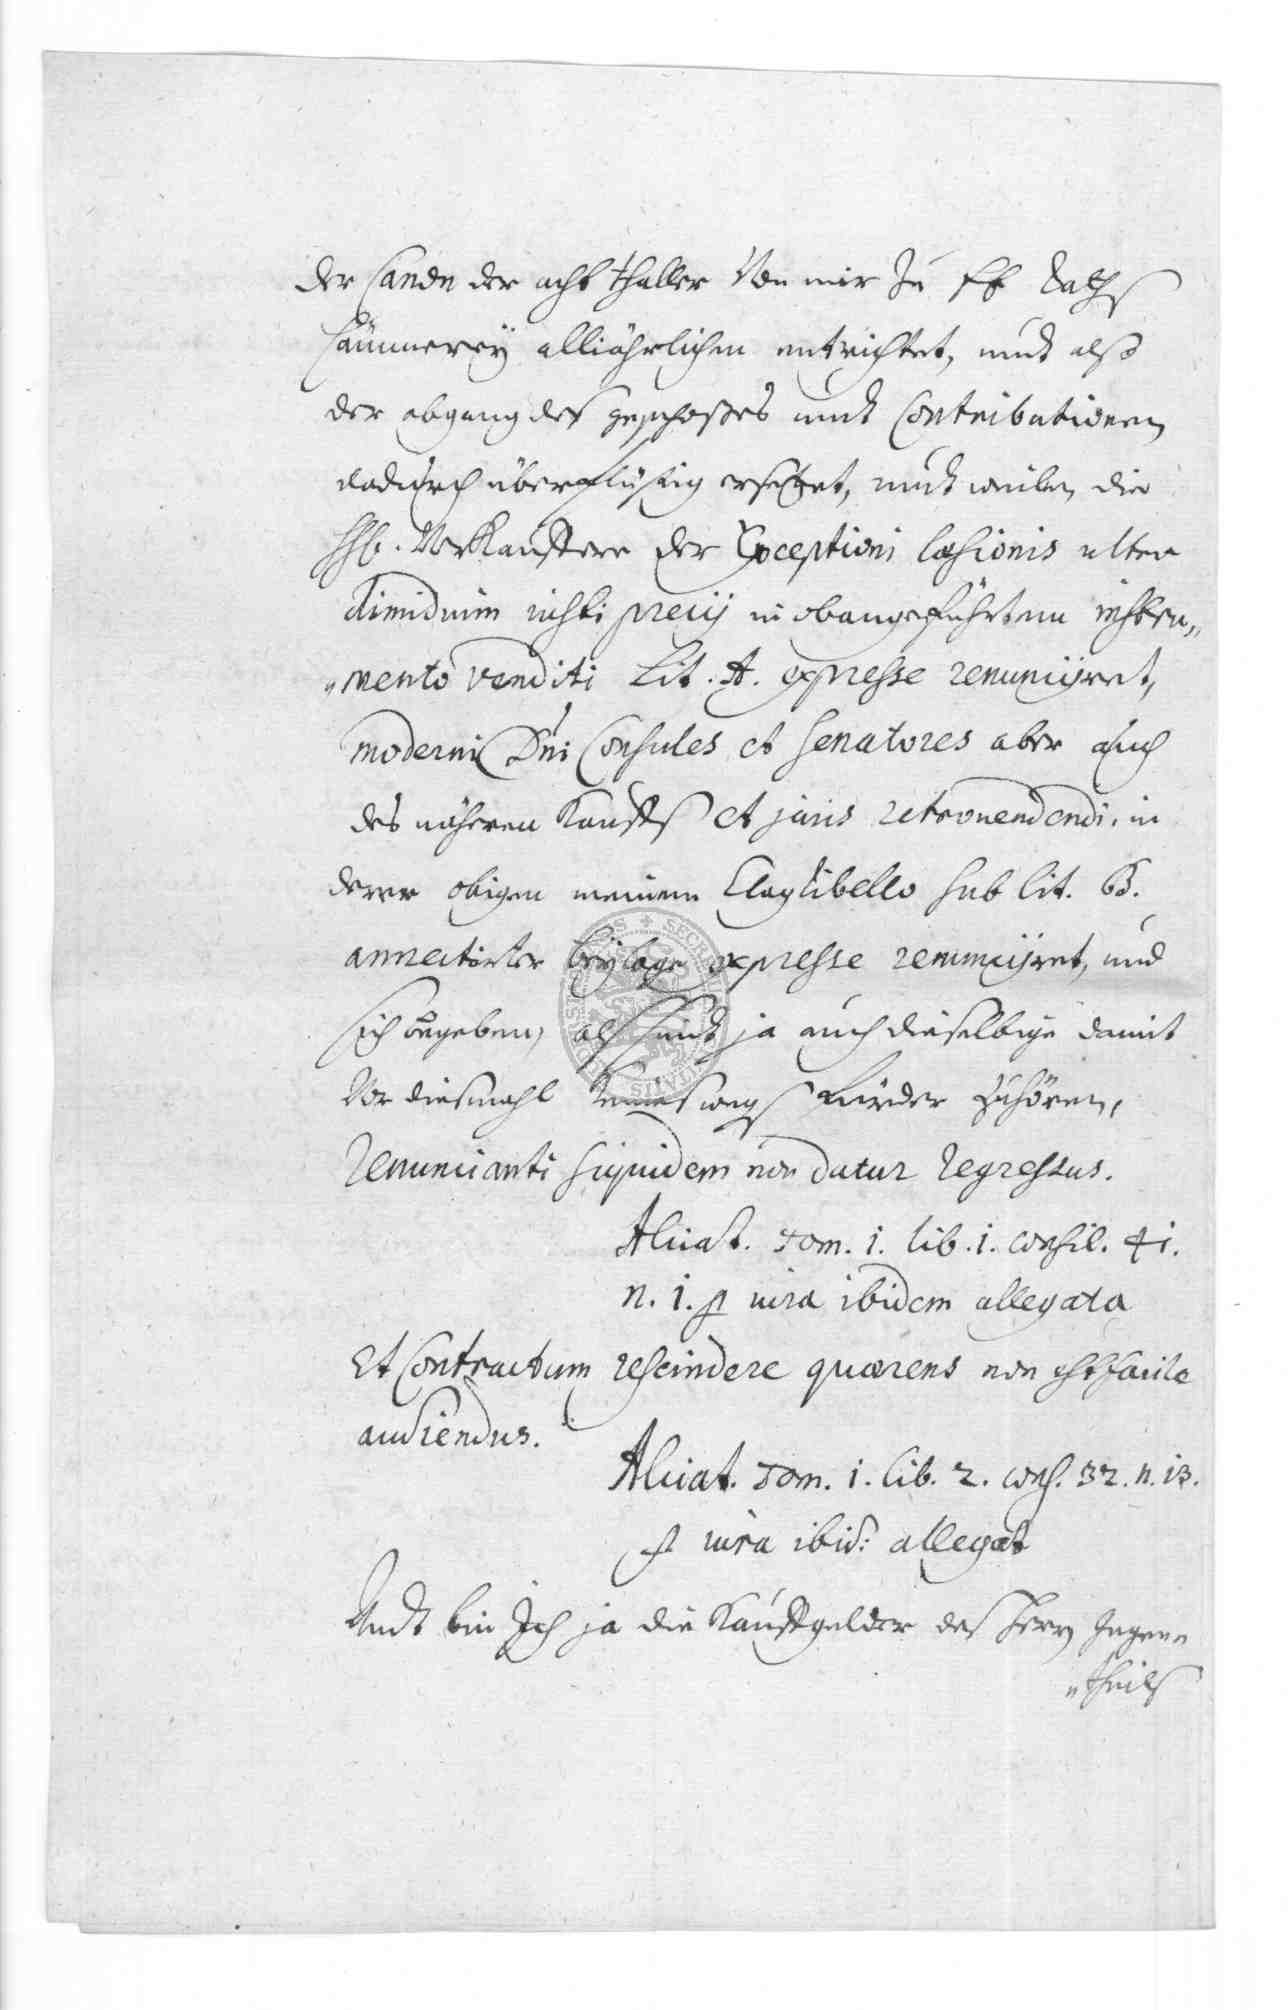 der Canon der acht Thaller Von mir Zu EE Raths
Cämmerey alljährlichen entrichtet, undt alß
der abgang des geschoßes undt Contributionen
dadurch überflüßig ersetzet, undt weilen die
HH. Verkauffere der Exceptioni læsionis ultra
dimidium iusti precij in obangeführtem instru„
„mento venditi Lit. A. expresse renuncijret,
moderni Dni Consules et Senatores aber auch
des näheren Kauffs et juris retrovendendi, in
derer obigen meinem Claglibello sub lit. B.
annectirter beylage expresse renuncijret, und
sich begeben, alß seindt ja auch dieselbige damit
Vor diesmahl keineswegs fürder zuhören,
Renuncianti siquidem non datur regressus.
Alciat. Tom. 1. lib. 1. consil. 41.
n. 1. et iura ibidem allegata
Et Contractum rescindere quærens non est facile
audiendus.
Alciat. Tom. 1. lib. 2. cons. 32. n. 13.
et iura ibid: allegat
Undt bin Ich ja die Kauffgelder des Herrn Gegen„
„theils